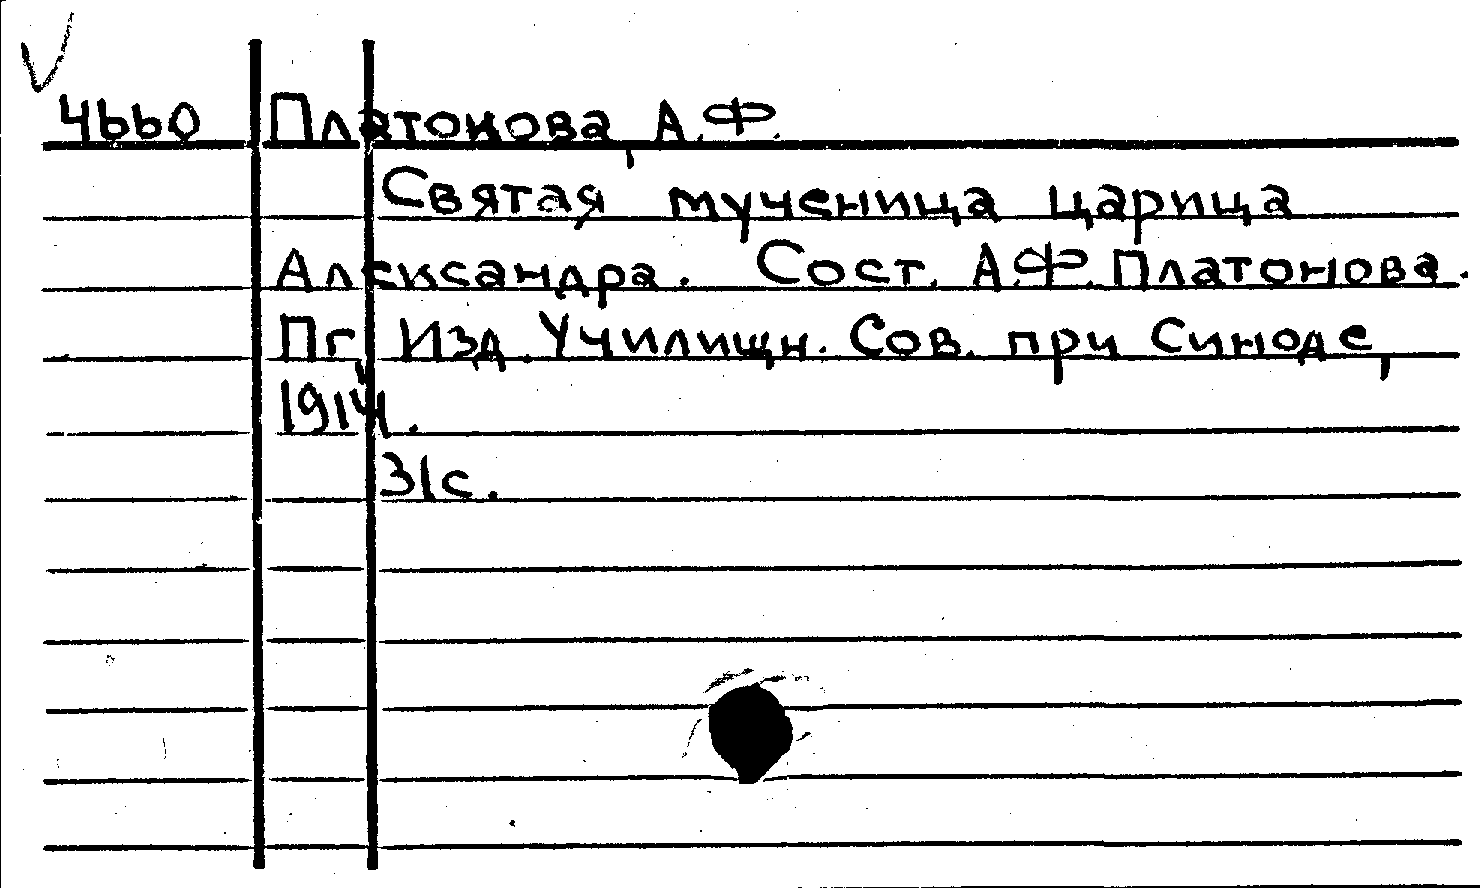 4660 Платонова, А.Ф.
Святая мученица царица
Александра. Сост. А.Ф. Платонова.
Пг., Изд. Училищн. Сов. при Синоде,
1914.
31с.